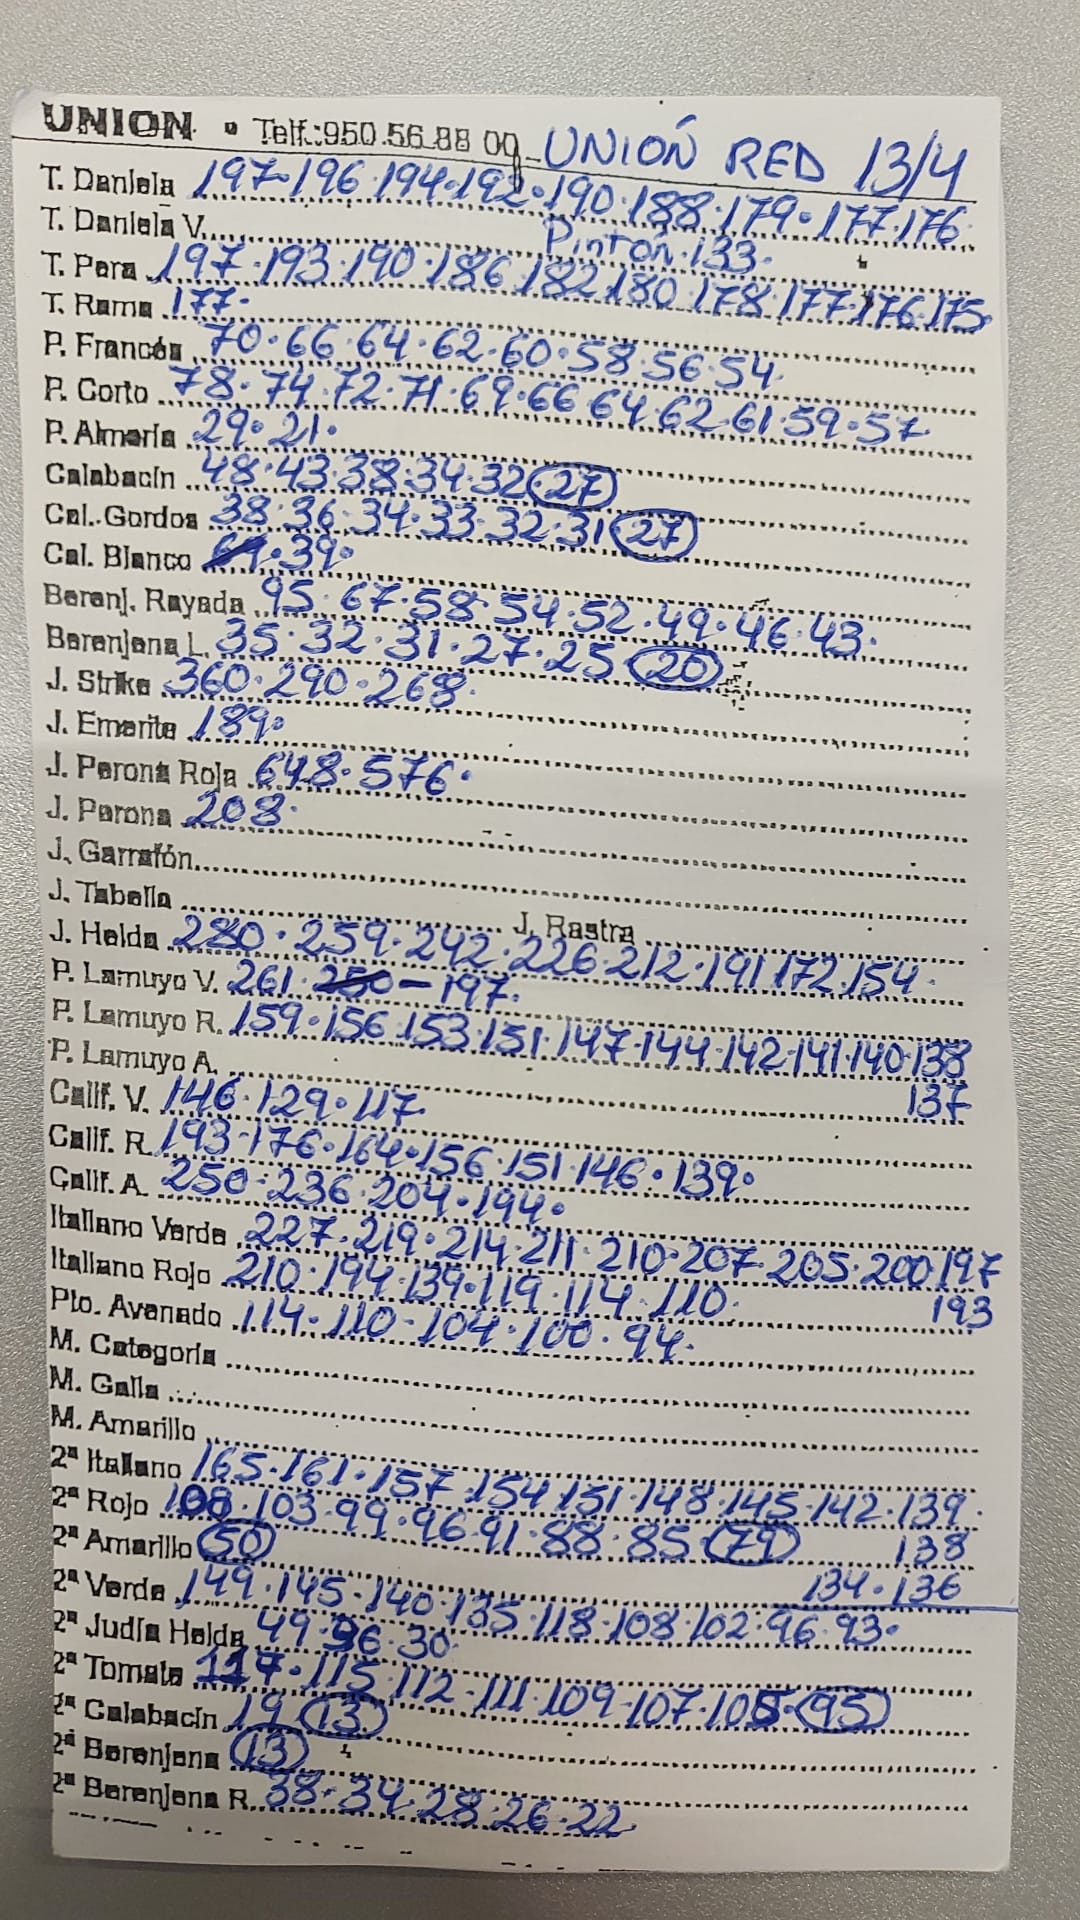 UNION • Telf.:950.56.88 00 UNIÓN RED 13/4
T. Daniela 197·196·194·192·190·188·179·177·176
T. Daniela V. Pinton·133·
T. Pera 197·193·190·186·182·180·178·177·176·175·
T. Rama 177·
P. Francés 70·66·64·62·60·58·56·54
P. Corto 78·74·72·71·69·66·64·62·61·59·57
P. Almería 29·21·
Calabacín 48·43·38·34·32·27
Cal. Gordos 38·36·34·33·32·31·27
Cal. Blanco 39·
Berenj. Rayada 95·67·58·54·52·49·46·43·
Berenjena L. 35·32·31·27·25·20
J. Strike 360·290·268·
J. Emerite 189·
J. Perona Roja 648·576·
J. Perona 208·
J. Garrafón
J. Tabella J. Rastra
J. Helda 280·259·242·226·212·191·172·154·
P. Lamuyo V. 261·250-197·
P. Lamuyo R. 159·156·153·151·147·144·142·141·140·138
P. Lamuyo A. 137
Calif. V. 146·129·117
Calif. R. 193·176·164·156·151·146·139·
Calif. A. 250·236·204·194·
Italiano Verde 227·219·214·211·210·207·205·200·197
Italiano Rojo 210·194·139·119·114·110· 193
Pto. Avanado 114·110·104·100·94·
M. Categoría
M. Galia
M. Amarillo
2ª Italiano 165·161·157·154·151·148·145·142·139·
2ª Rojo 108·103·99·96·91·88·85·79 138
2ª Amarillo 50 134·136
2ª Verde 149·145·140·135·118·108·102·96·93·
2ª Judía Helda 49·36·30·
2ª Tomate 117·115·112·111·109·107·105·95
2ª Calabacín 19·13
2ª Berenjena 13
2ª Berenjena R. 38·34·28·26·22·